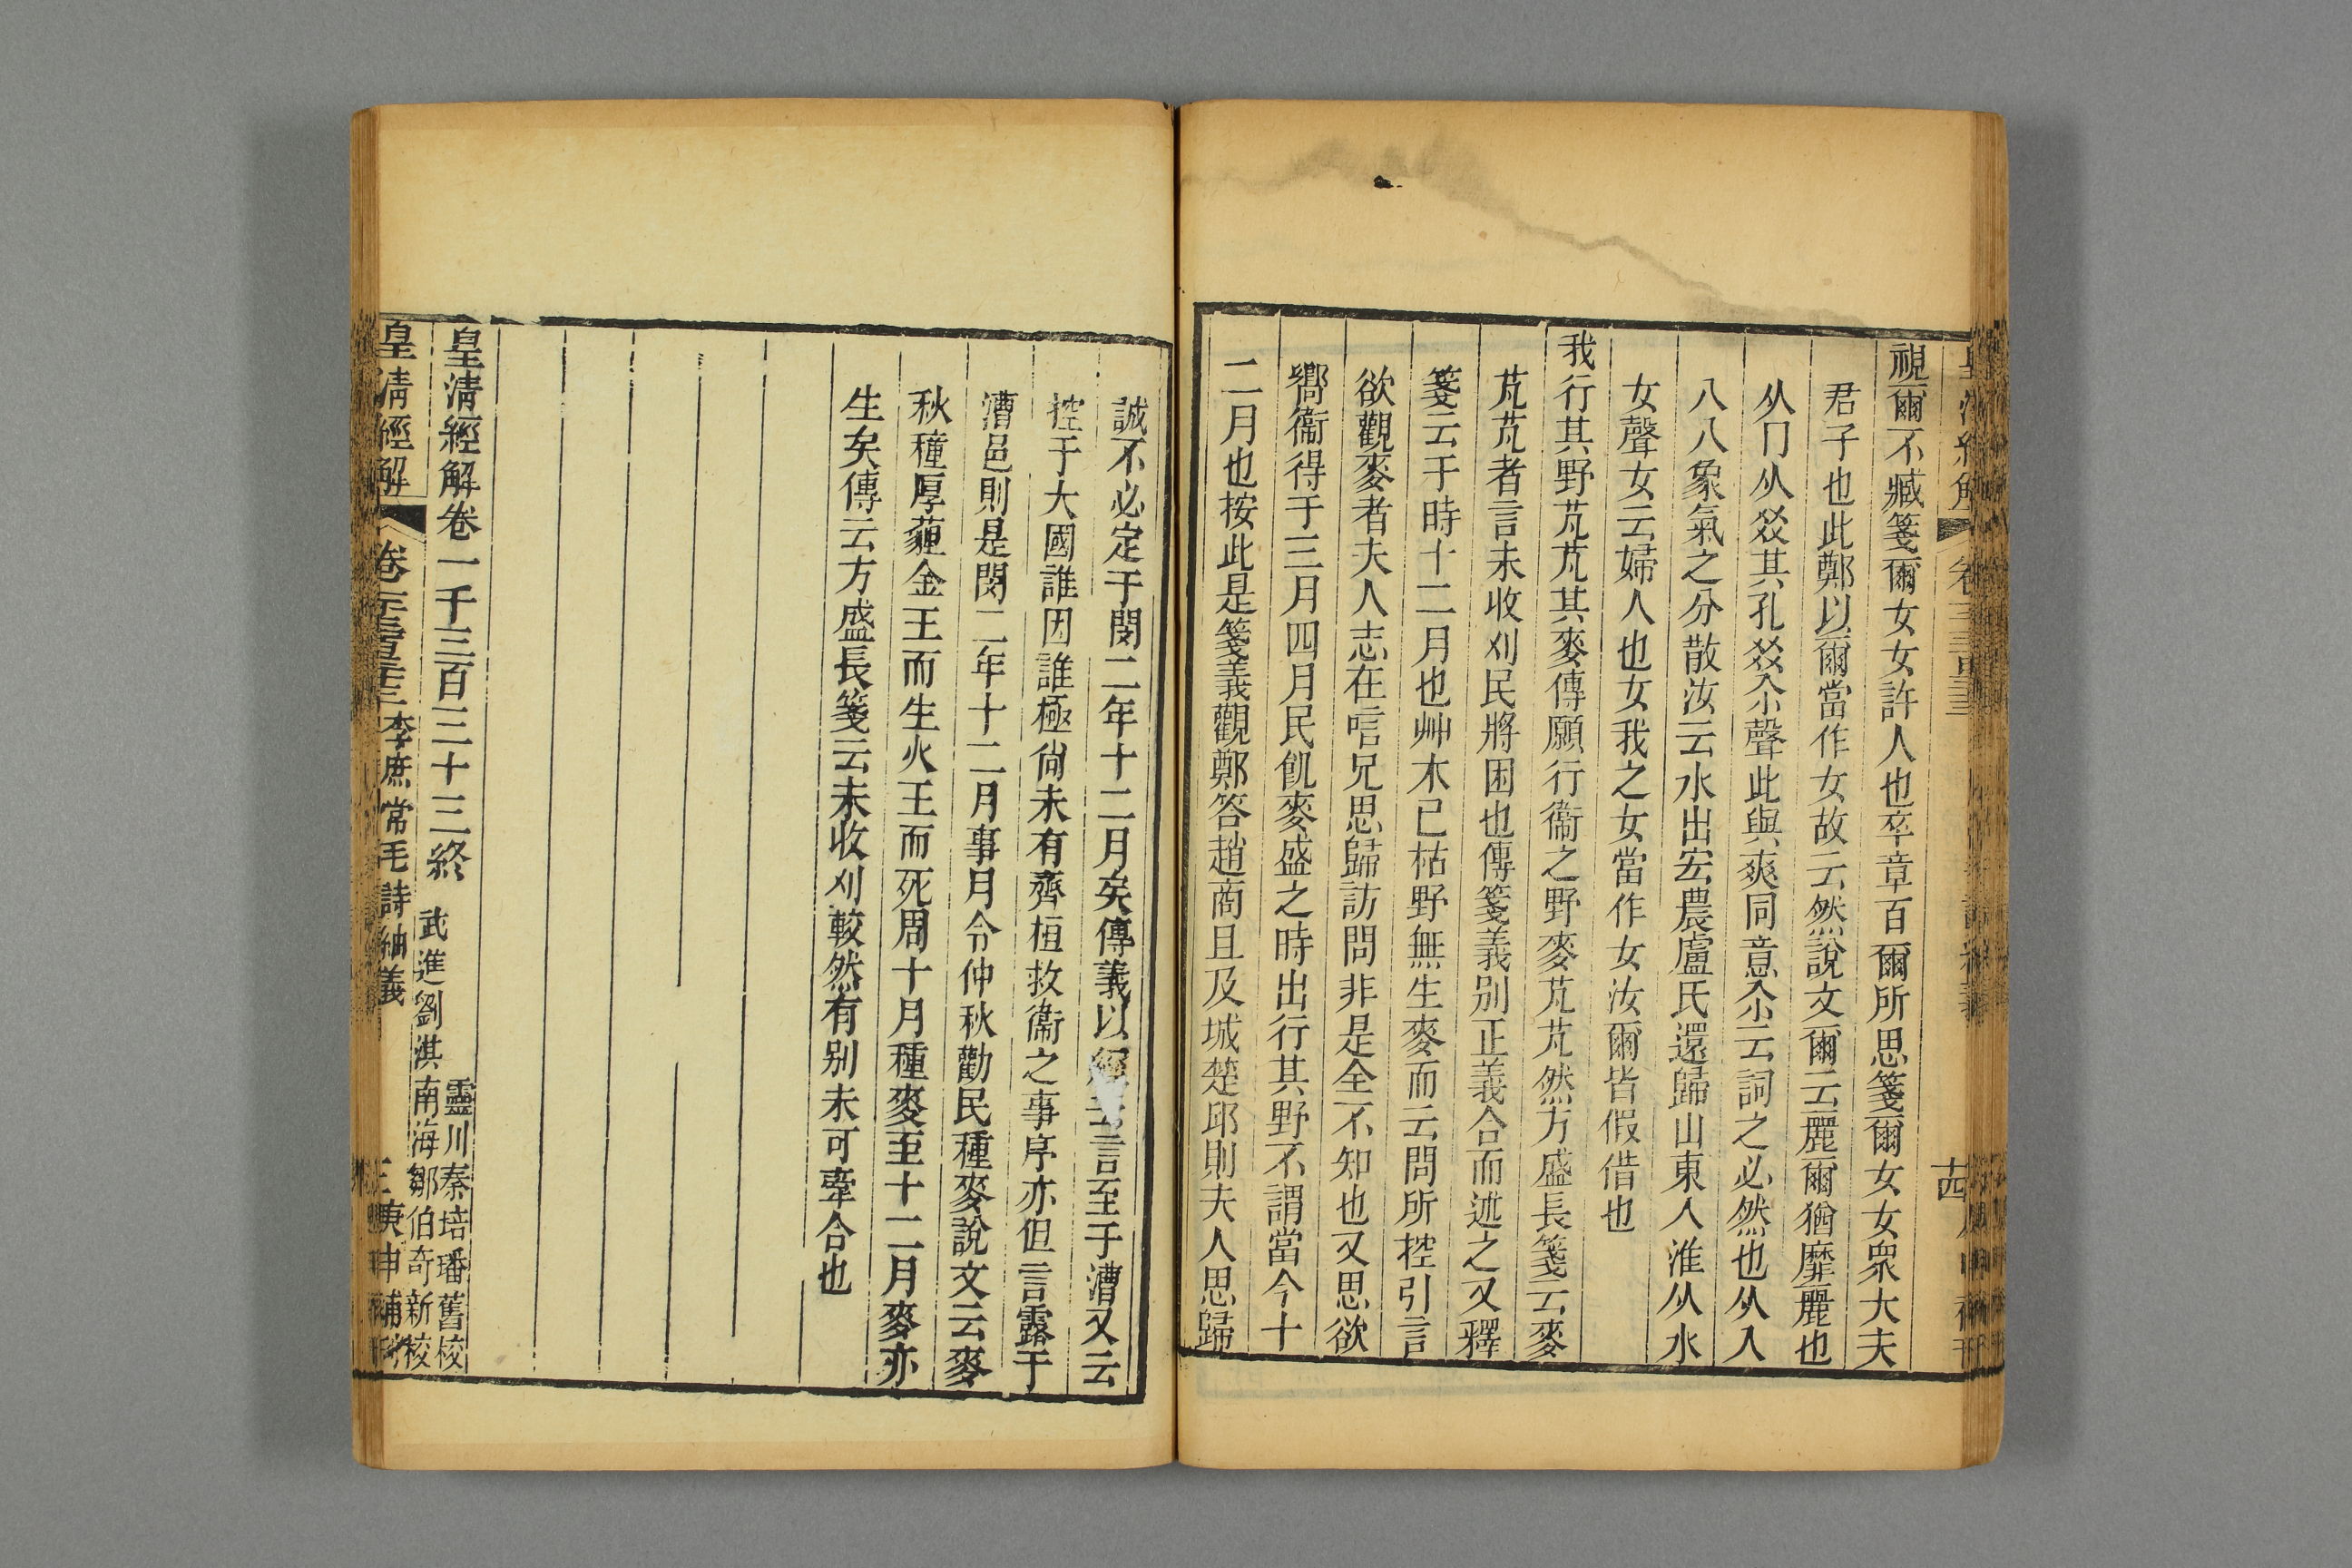 視爾不臧箋爾女女許人也卒章百爾所思箋爾女女衆大夫
君子也此鄭以爾當作女故云然說文爾云麗爾猶靡麗也
从冂从㸚其孔㸚尒聲此與爽同意尒云詞之必然也从入
八八象氣之分散汝云水出宏農盧氏還歸山東入淮从水
女聲女云婦人也女我之女當作女汝爾皆假借也
我行其野芃芃其麥傳願行衞之野麥芃芃然方盛長箋云麥
芃芃者言未收刈民將困也傳箋義别正義合而述之又釋
箋云于時十二月也艸木已枯野無生麥而云問所控引言
欲觀麥者夫人志在唁兄思歸訪問非是全不知也又思欲
嚮衞得于三月四月民飢麥盛之時出行其野不謂當今十
二月也按此是箋義觀鄭答趙商且及城楚邱則夫人思歸
十四
誠不必定于閔二年十二月矣傳義以經言至于漕又云
控于大國誰因誰極尙未有齊桓救衞之事序亦但言露于
漕邑則是閔二年十二月事月令仲秋勸民種麥說文云麥
秋種厚薶金王而生火王而死周十月種麥至十二月麥亦
生矣傳云方盛長箋云未收刈較然有别未可牽合也
皇淸經解卷一千三百三十三終
靈川秦培璠舊校
武進劉淇南海鄒伯奇新校
皇淸經解
李庶常毛詩紬義
庚申補刊